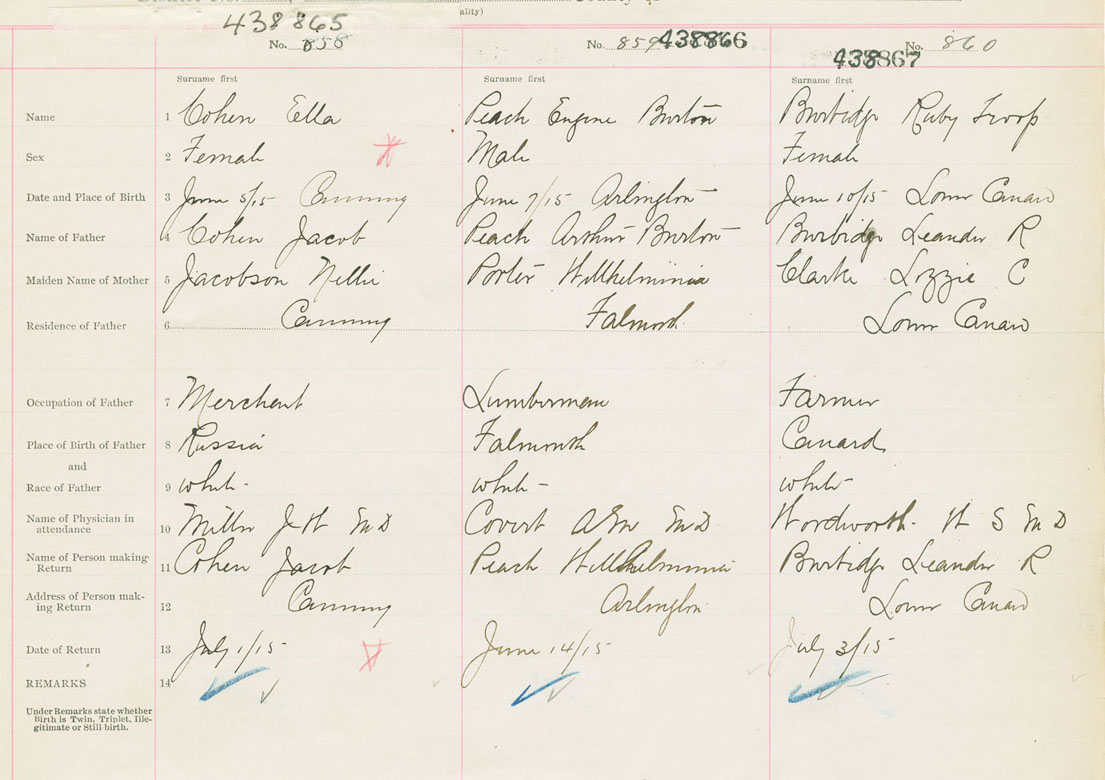 ality)
438865
No. 858
No. 859 438866
438867 No. 860
Surname first Surname first Surname first
Name 1 Cohen Ella Peach Eugene Burton Burbidge Ruby Troop
Sex 2 Female Male Female
Date and Place of Birth 3 June 5/15 Canning June 7/15 Arlington June 10/15 Lower Canard
Name of Father 4 Cohen Jacob Peach Arthur Burton Burbidge Leander R
Maiden Name of Mother 5 Jacobson Nellie Porter Willhelminia Clarke Lizzie C
Residence of Father 6 Canning Falmouth Lower Canard
Occupation of Father 7 Merchant Lumberman Farmer
Place of Birth of Father 8 Russia Falmouth Canard
and
Race of Father 9 white - white - white -
Name of Physician in
attendance 10 Miller J W M D Covert A M M D Wordworth H S M D
Name of Person making
Return 11 Cohen Jacob Peach Willhelminia Burbidge Leander R
Address of Person mak-
ing Return 12 Canning Arlington Lower Canard
Date of Return 13 July 1/15 June 14/15 July 3/15
REMARKS 14
Under Remarks state whether
Birth is Twin, Triplet, Ille-
gitimate or Still-birth.